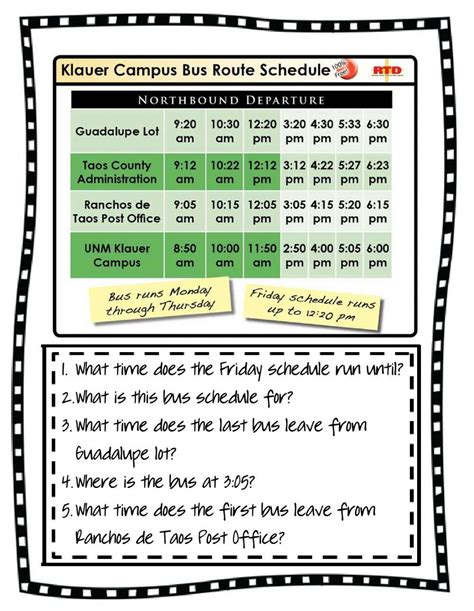 Klauer Campus Bus Route Schedule 100% RTD
NORTHBOUND DEPARTURE
Guadalupe Lot 9:20 am 10:30 am 12:20 pm 3:20 pm 4:30 pm 5:33 pm 6:30 pm
Taos County Administration 9:12 am 10:22 am 12:12 pm 3:12 pm 4:22 pm 5:27 pm 6:23 pm
Ranchos de Taos Post Office 9:05 am 10:15 am 12:05 pm 3:05 pm 4:15 pm 5:20 pm 6:15 pm
UNM Klauer Campus 8:50 am 10:00 am 11:50 am 2:50 pm 4:00 pm 5:05 pm 6:00 pm
Bus runs Monday
through Thursday
Friday schedule runs
up to 12:20 pm
1. What time does the Friday schedule run until?
2. What is this bus schedule for?
3. What time does the last bus leave from
Guadalupe lot?
4. Where is the bus at 3:05?
5. What time does the first bus leave from
Ranchos de Taos Post Office?